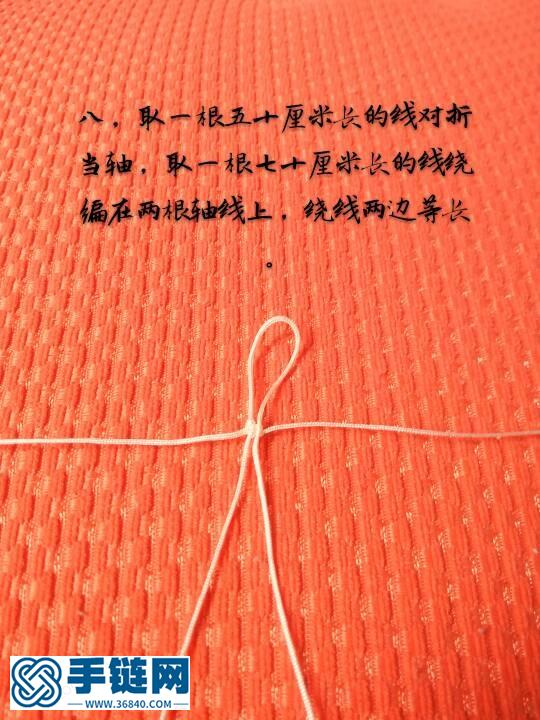 八，取一根五十厘米长的线对折
当轴，取一根七十厘米长的线绕
编在两根轴线上，绕线两边等长
。
手链网
WWW.36840.COM